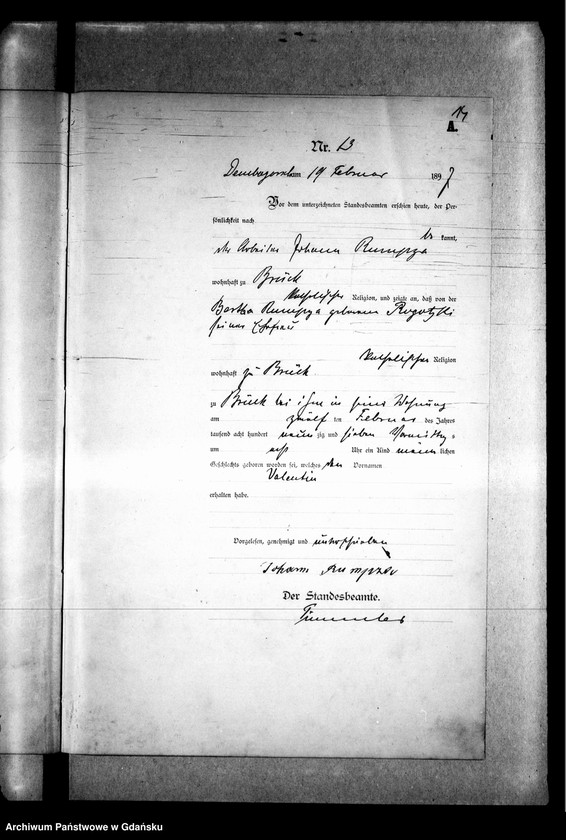 A.
Nr. 13
Dembogorsch am 19 Februar 1897
Vor dem unterzeichneten Standesbeamten erschien heute, der Per-
sönlichkeit nach
be kannt,
der Arbeiter Johann Rumpza
wohnhaft zu Brück
katholischer Religion, und zeigte an, daß von der
Bertha Rumpza geborenen Rogotzki
seiner Ehefrau
katholischer Religion
wohnhaft zu Brück
zu Brück bei ihm in seiner Wohnung
am zwölf ten Februar des Jahres
tausend acht hundert neun zig und sieben Vormittag s
um acht Uhr ein Kind männ lichen
Geschlechts geboren worden sei, welches den Vornamen
Valentin
erhalten habe.
Vorgelesen, genehmigt und unterschrieben
Johann Rumpza
Der Standesbeamte.
Archiwum Państwowe w Gdańsku